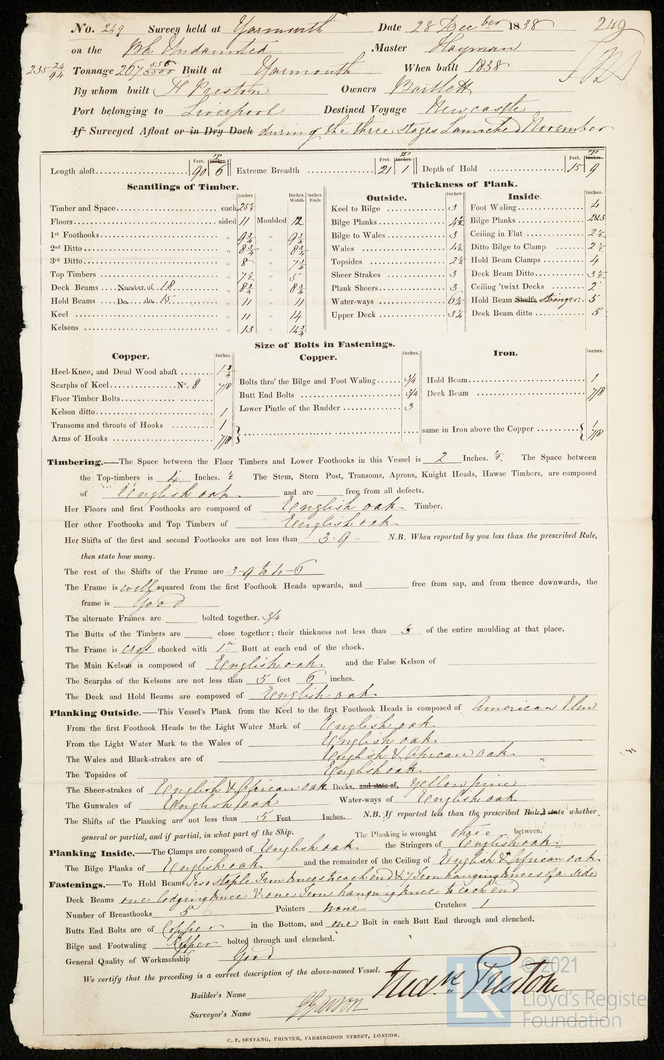 No. 249 Survey held at Yarmouth Date 28 Decber 1838 249
on the Bk Undaunted Master Hayman
235 24/94 Tonnage 207 Built at Yarmouth When built 1838
By whom built H Preston Owners Bartlett
Port belonging to Liverpool Destined Voyage Newcastle
If Surveyed Afloat or in Dry Dock during the three stages Launched November
Length aloft 90 6 Extreme Breadth 21 1 Depth of Hold 15 9
Scantlings of Timber. Thickness of Plank.
Outside. Inside.
Timber and Space each 25½ Keel to Bilge 3 Foot Waling 4
Floors sided 11 Moulded 12 Bilge Planks 4½ Bilge Planks
1st Foothooks 9½ 9½ Bilge to Wales 3 Ceiling in Flat 2½
2nd Ditto 8¾ 8¾ Wales 4½ Ditto Bilge to Clamp 2½
3rd Ditto 8 7½ Topsides 2½ Hold Beam Clamps 4
Top Timbers 7½ 5 Sheer Strakes 3 Deck Beam Ditto 3½
Deck Beams Number of 18 8¾ 8¾ Plank Sheers 3 Ceiling 'twixt Decks 2
Hold Beams Do. do. 15 11 11 Water-ways 6½ Hold Beam Shelfs stringer 5
Keel 11 14 Upper Deck 3¼ Deck Beam ditto 5
Kelsons 13 14½
Size of Bolts in Fastenings.
Copper. Copper. Iron.
Heel-Knee, and Dead Wood abaft 1¾
Scarphs of Keel No. 8 7/8 Bolts thro' the Bilge and Foot Waling 3/4 Hold Beam 1
Floor Timber Bolts Butt End Bolts 3/4 Deck Beam 7/8
Kelson ditto 1 Lower Pintle of the Rudder 3
Transoms and throats of Hooks 1
Arms of Hooks 7/8 same in Iron above the Copper 1 7/8
Timbering.—The Space between the Floor Timbers and Lower Foothooks in this Vessel is 2 Inches. The Space between
the Top-timbers is 4 Inches. The Stem, Stern Post, Transoms, Aprons, Knight Heads, Hawse Timbers, are composed
of English oak and are free from all defects.
Her Floors and first Foothooks are composed of English oak Timber.
Her other Foothooks and Top Timbers of English oak
Her Shifts of the first and second Foothooks are not less than 3-9 N.B. When reported by you less than the prescribed Rule,
then state how many.
The rest of the Shifts of the Frame are 3-9 to 4-6
The Frame is well squared from the first Foothook Heads upwards, and free from sap, and from thence downwards, the
frame is Good
The alternate Frames are bolted together. 3/4
The Butts of the Timbers are close together; their thickness not less than ⅓ of the entire moulding at that place.
The Frame is cross chocked with 1 Butt at each end of the chock.
The Main Kelson is composed of English oak and the False Kelson of
The Scarphs of the Kelsons are not less than 5 feet 6 inches.
The Deck and Hold Beams are composed of English oak
Planking Outside.—This Vessel's Plank from the Keel to the first Foothook Heads is composed of American Elm
From the first Foothook Heads to the Light Water Mark of English oak
From the Light Water Mark to the Wales of English oak
The Wales and Black-strakes are of English & African oak
The Topsides of English oak
The Sheer-strakes of English & African oak Decks, and state of, Yellow pine
The Gunwales of English oak Water-ways of English oak
The Shifts of the Planking are not less than 5 Feet Inches. N.B. If reported less than the prescribed Rule state whether
general or partial, and if partial, in what part of the Ship. The Planking is wrought three between.
Planking Inside.—The Clamps are composed of English oak the Stringers of English oak
The Bilge Planks of English oak and the remainder of the Ceiling of English & African oak
Fastenings.—To Hold Beams Two staple Iron knees to each end & 7 Iron hanging knees of a side
Deck Beams one lodging knee & one Iron hanging knee to each end
Number of Breasthooks 5 Pointers none Crutches 1
Butts End Bolts are of Copper in the Bottom, and one Bolt in each Butt End through and clenched.
Bilge and Footwaling Copper bolted through and clenched.
General Quality of Workmanship Good
We certify that the preceding is a correct description of the above-named Vessel.
Builder's Name Preston
Surveyor's Name
© 2021
Lloyd's Register
Foundation
C. F. SEYFANG, PRINTER, FARRINGDON STREET, LONDON.